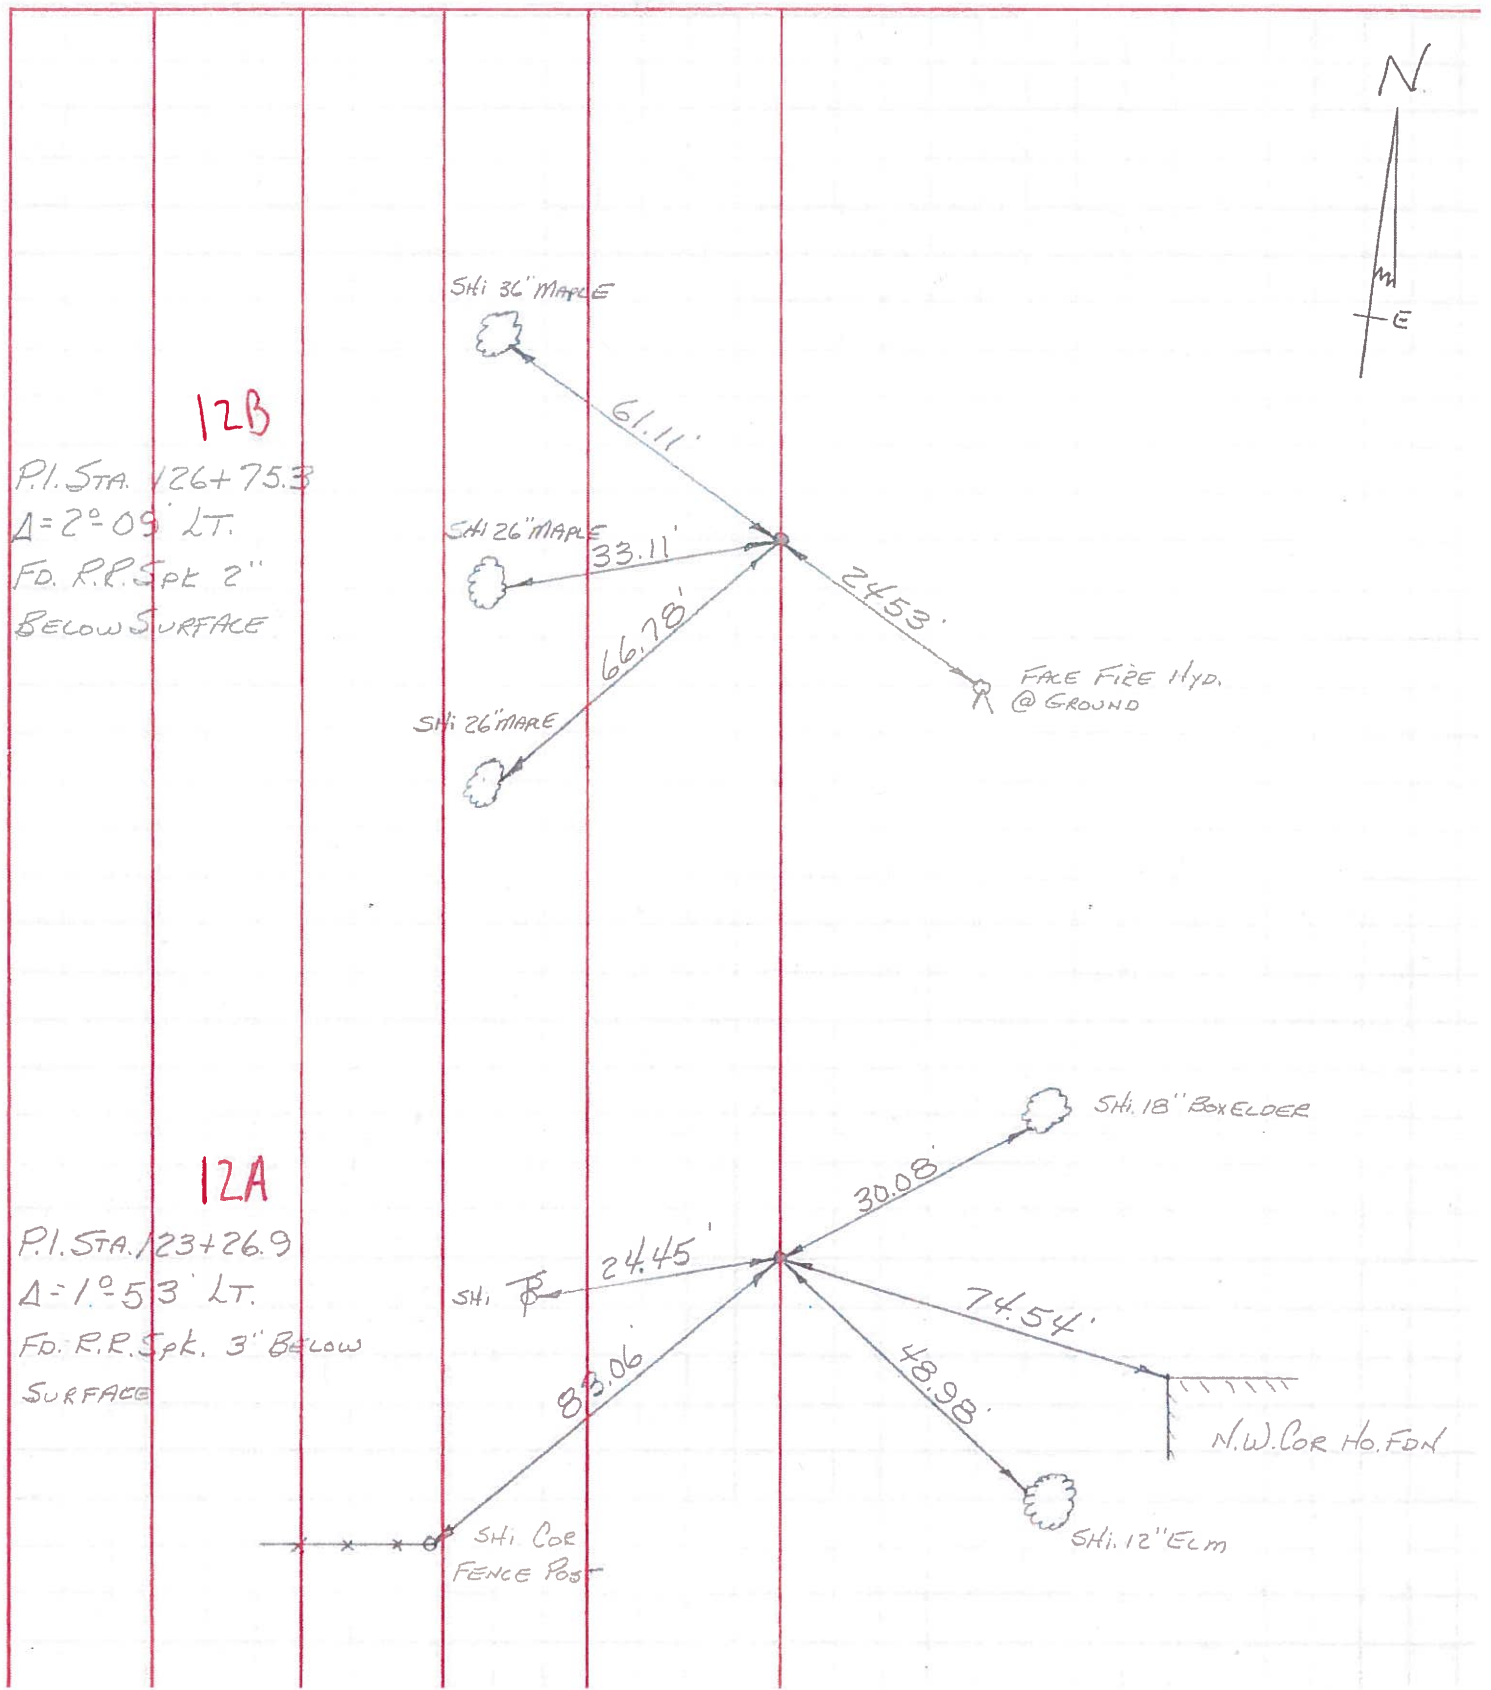 N
E
SHi 36" MAPLE
61.11'
12B
P.I. STA. 126+75.3
Δ=2º09' LT.
FD. R.R. Spk 2"
BELOW SURFACE
SHi 26" MAPLE
33.11'
24.53'
66.78'
FACE FIRE HYD.
@ GROUND
SHi 26" MAPLE
SHi. 18" BOXELDER
30.08'
12A
P.I. STA. 123+26.9
Δ=1º53' LT.
FD. R.R. Spk. 3" BELOW
SURFACE
24.45'
SHi
74.54'
83.06'
48.98'
N.W. COR HO. FDN
SHi. COR
FENCE POST
SHi. 12" ELM